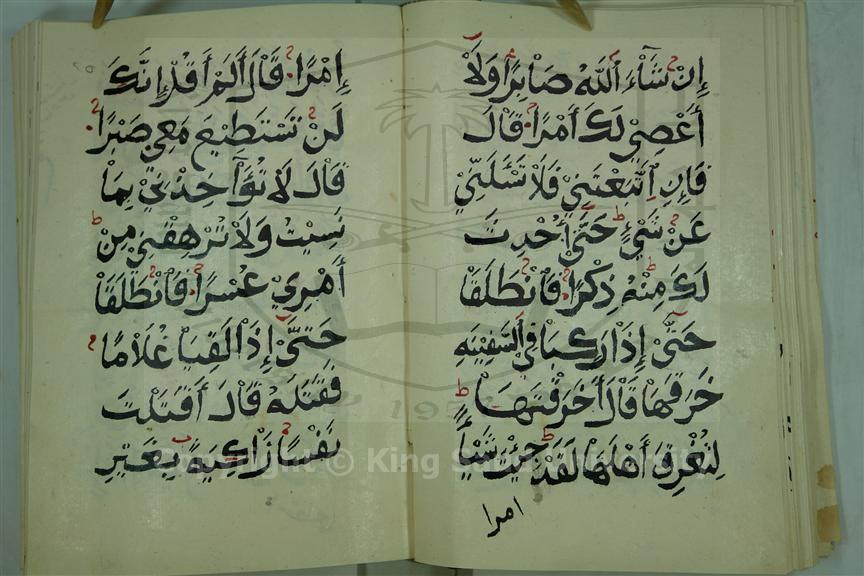 إِنْ شَآءَ اللَّهُ صَابِرًا وَلَآ
أَعْصِيْ لَكَ أَمْرًا قَالَ
فَإِنِ اتَّبَعْتَنِيْ فَلَا تَسْئَلَنِّيْ
عَنْ شَيْءٍ حَتَّى أُحْدِثَ
لَكَ مِنْهُ ذِكْرًا فَانْطَلَقَا
حَتَّىْ إِذَا رَكِبَا فِي السَّفِيْنَةِ
خَرَقَهَا قَالَ أَخَرَقْتَهَا
لِتُغْرِقَ أَهْلَهَا لَقَدْ جِئْتَ شَيْأً
امرا
إِمْرًا قَالَ أَلَمْ أَقُلْ إِنَّكَ
لَنْ تَسْتَطِيْعَ مَعِيْ صَبْرًا
قَالَ لَا تُؤَآخِذْنِيْ بِمَا
نَسِيْتُ وَلَا تُرْهِقْنِيْ مِنْ
أَمْرِيْ عُسْرًا فَانْطَلَقَا
حَتَّىْ إِذَا لَقِيَا غُلَامًا
فَقَتَلَهُ قَالَ أَقَتَلْتَ
نَفْسًا زَاكِيَةً بِغَيْرِ
Copyright © King Saud University
1957